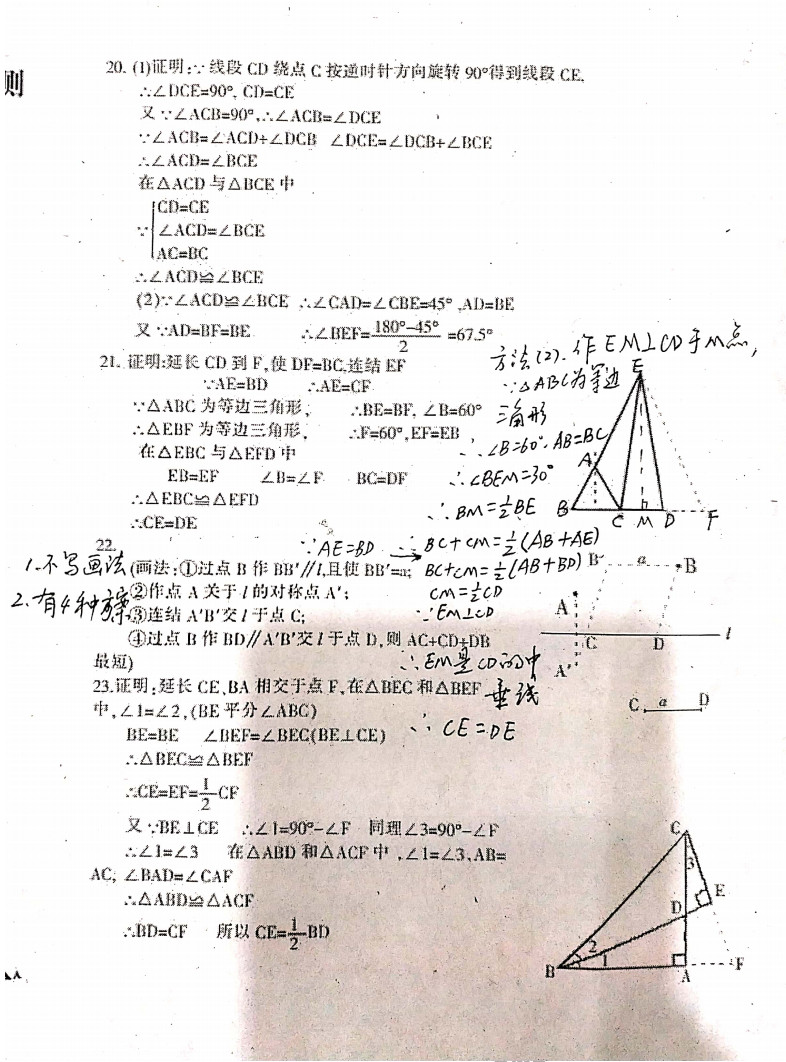 则
20. (1)证明:∵线段 CD 绕点 C 按逆时针方向旋转 90°得到线段 CE,
∴∠DCE=90°, CD=CE
又∵∠ACB=90°,∴∠ACB=∠DCE
∵∠ACB=∠ACD+∠DCB ∠DCE=∠DCB+∠BCE
∴∠ACD=∠BCE
在△ACD 与△BCE 中
CD=CE
∵ ∠ACD=∠BCE
AC=BC
∴∠ACD≌∠BCE
(2)∵∠ACD≌∠BCE ∴∠CAD=∠CBE=45° ,AD=BE
又∵AD=BF=BE ∴∠BEF=180°-45°/2=67.5°
方法(2).作EM⊥CD于M点,
21. 证明:延长 CD 到 F,使 DF=BC,连结 EF
∵AE=BD ∴AE=CF
∵△ABC为等边
E
∵△ABC 为等边三角形, ∴BE=BF, ∠B=60°
三角形
∴△EBF 为等边三角形, ∴F=60°,EF=EB
∴∠B=60°,AB=BC
在△EBC 与△EFD 中
A
EB=EF ∠B=∠F BC=DF
∴∠BEM=30°
∴△EBC≌△EFD
∴BM=½BE
B C M D F
∴CE=DE
∵AE=BD ∴BC+CM=½(AB+AE)
22.
1.不写画法
(画法:①过点 B 作 BB′∥l,且使 BB′=a;
BC+CM=½(AB+BD)
B′ a B
2.有4种方案
②作点 A 关于 l 的对称点 A′;
CM=½CD
③连结 A′B′交 l 于点 C;
∵EM⊥CD
A
l
C D
④过点 B 作 BD∥A′B′交 l 于点 D,则 AC+CD+DB
最短)
∴EM是CD的中
A′
垂线
23.证明:延长 CE,BA 相交于点 F,在△BEC 和△BEF
中,∠1=∠2,(BE 平分∠ABC)
C a D
BE=BE ∠BEF=∠BEC(BE⊥CE)
∴CE=DE
∴△BEC≌△BEF
∴CE=EF=½CF
又∵BE⊥CE ∴∠1=90°-∠F 同理∠3=90°-∠F
∴∠1=∠3 在△ABD 和△ACF 中,∠1=∠3,AB=
AC, ∠BAD=∠CAF
∴△ABD≌△ACF
∴BD=CF 所以 CE=½BD
C
3
E
D
2
1
B A F